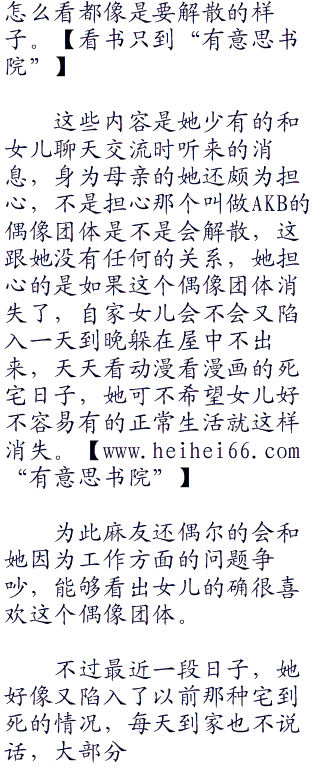 怎么看都像是要解散的样
子。【看书只到“有意思书
院”】
这些内容是她少有的和
女儿聊天交流时听来的消
息，身为母亲的她还颇为担
心，不是担心那个叫做AKB的
偶像团体是不是会解散，这
跟她没有任何的关系，她担
心的是如果这个偶像团体消
失了，自家女儿会不会又陷
入一天到晚躲在屋中不出
来，天天看动漫看漫画的死
宅日子，她可不希望女儿好
不容易有的正常生活就这样
消失。【www.heihei66.com
“有意思书院”】
为此麻友还偶尔的会和
她因为工作方面的问题争
吵，能够看出女儿的确很喜
欢这个偶像团体。
不过最近一段日子，她
好像又陷入了以前那种宅到
死的情况，每天到家也不说
话，大部分